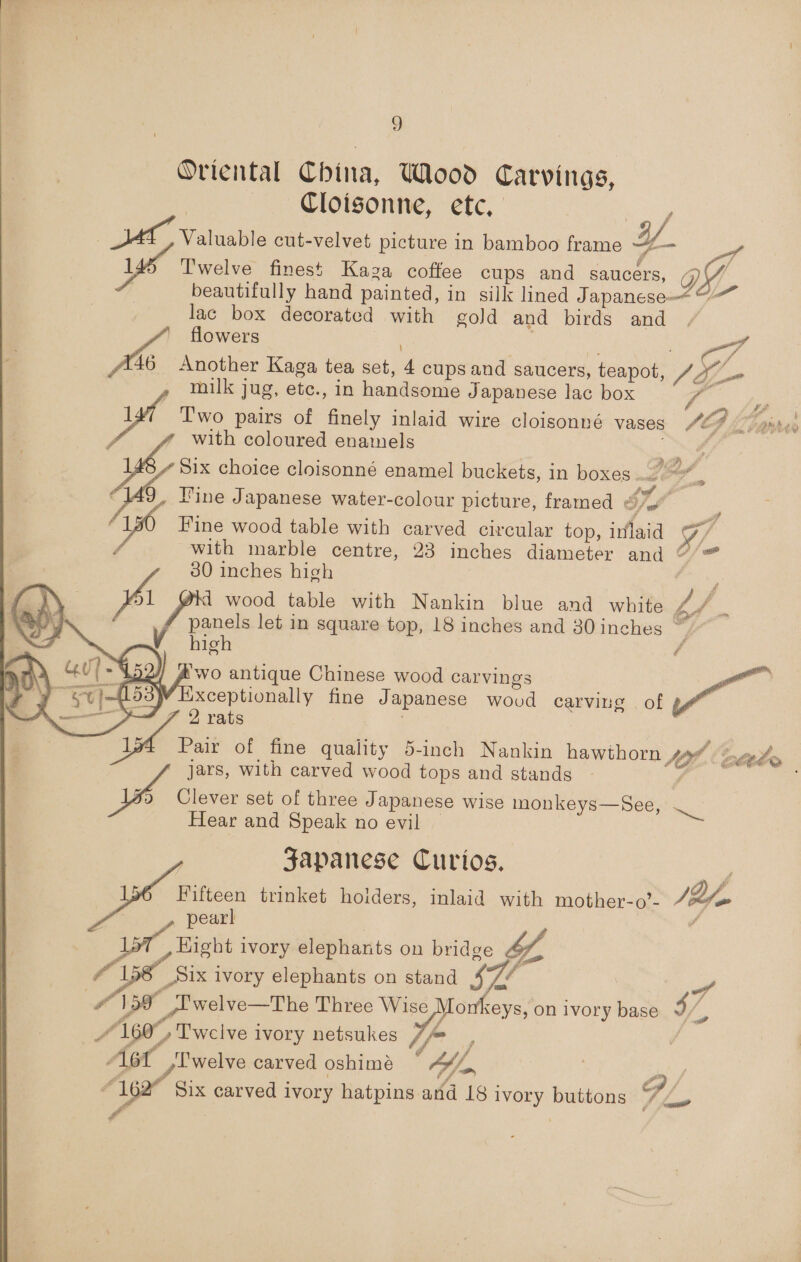 9
Oriental China, Wood Carvings,
Cloisonne, etc.
144 Valuable cut-velvet picture in bamboo frame
145 Twelve finest Kaga coffee cups and saucers,
beautifully hand painted, in silk lined Japanese
lac box decorated with gold and birds and
flowers
146 Another Kaga tea set, 4 cups and saucers, teapot,
milk jug, etc., in handsome Japanese lac box
147 Two pairs of finely inlaid wire cloisonné vases
with coloured enamels
148 Six choice cloisonné enamel buckets, in boxes
149 Fine Japanese water-colour picture, framed
150 Fine wood table with carved circular top, inlaid
with marble centre, 23 inches diameter and
30 inches high
151 Old wood table with Nankin blue and white
panels let in square top, 18 inches and 30 inches
high
152 Two antique Chinese wood carvings
153 Exceptionally fine Japanese wood carving of
2 rats
154 Pair of fine quality 5-inch Nankin hawthorn
jars, with carved wood tops and stands
155 Clever set of three Japanese wise monkeys—See,
Hear and Speak no evil
Japanese Curios.
156 Fifteen trinket holders, inlaid with mother-o'-
pearl
157 Eight ivory elephants on bridge
158 Six ivory elephants on stand
159 Twelve—The Three Wise Monkeys, on ivory base
160 Twelve ivory netsukes
161 Twelve carved oshimè
162 Six carved ivory hatpins and 18 ivory buttons